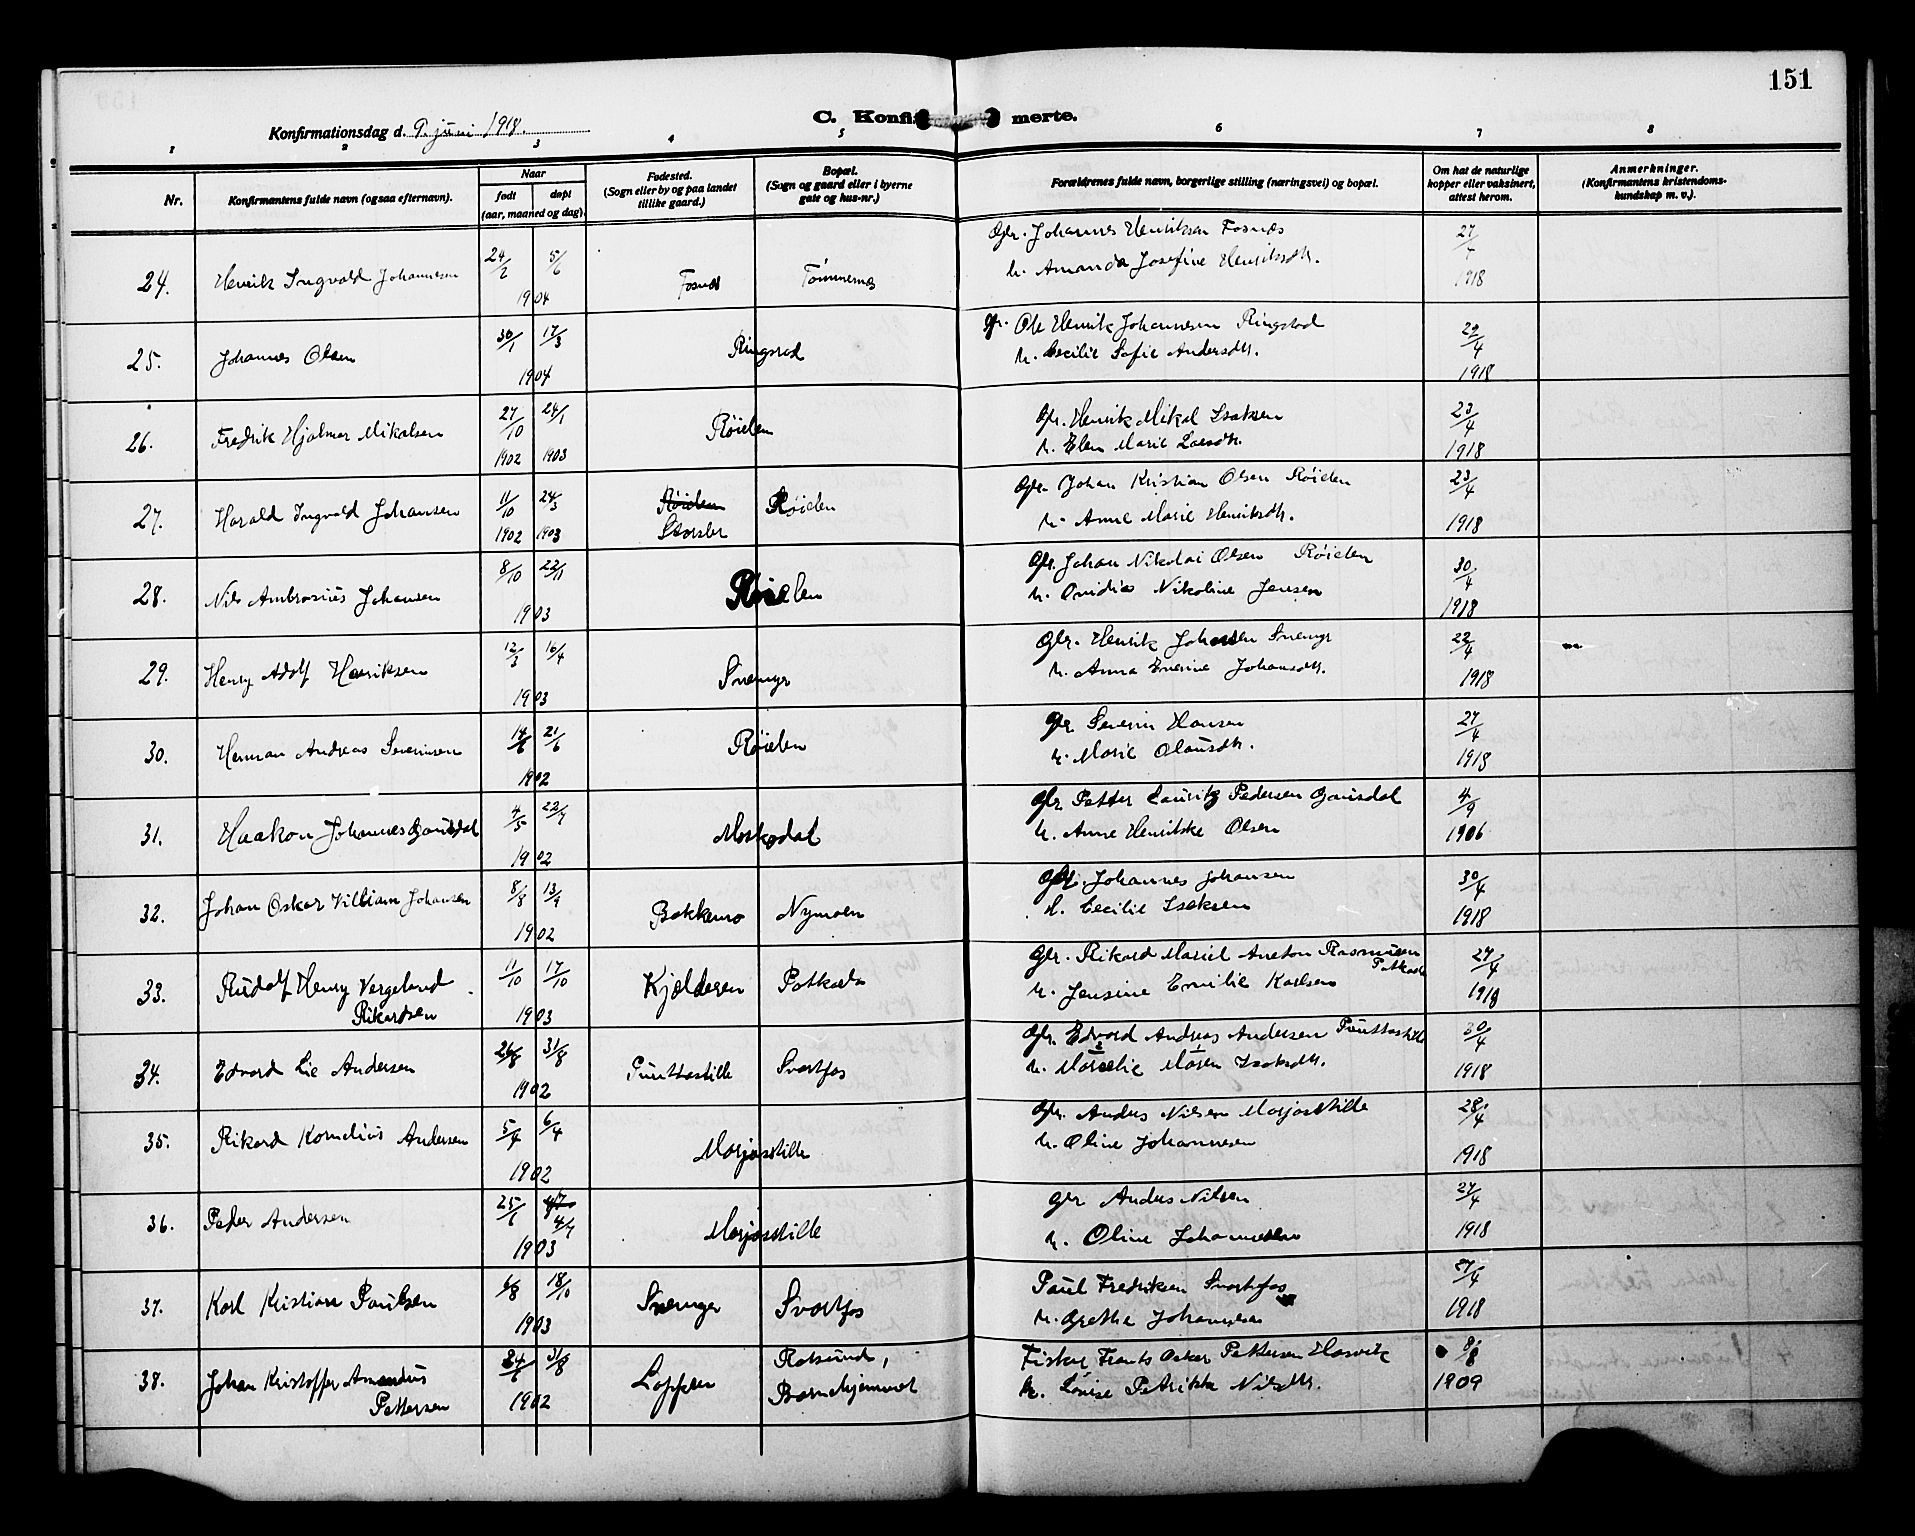 151
C. Konfirmerte.
Konfirmationsdag d. 9. juni 1918.
1 2 3 4 5 6 7 8
Nr.
Konfirmantens fulde navn (ogsaa efternavn).
Naar
født døpt
(aar, maaned og dag).
Fødested.
(Sogn eller by og paa landet
tillike gaard.)
Bopæl.
(Sogn og gaard eller i byerne
gate og hus-nr.)
Forældrenes fulde navn, borgerlige stilling (næringsvei) og bopæl.
Om hat de naturlige
kopper eller vaksinert,
attest herom.
Anmerkninger.
(Konfirmantens kristendoms-
kundskap m. v.).
24. Henrik Ingvald Johannesen 24/2 5/6 1904 Fosnes Tømmernes Gbr. Johannes Henriksen Fosnæs
h. Amanda Josefine Henriksdtr. 27/4 1918
25. Johannes Olsen 30/1 17/3 1904 Ringstad Gbr. Ole Henrik Johannesen Ringstad
h. Cecilie Sofie Andersdtr. 29/4 1918
26. Fredrik Hjalmer Mikalsen 27/10 1902 24/1 1903 Røielen Gbr. Henrik Mikal Isaksen
h. Elen Marie Larsdtr. 23/4 1918
27. Harald Ingvald Johansen 11/10 1902 24/3 1903 Røielen
Storslet Røielen Gbr. Johan Kristian Olsen Røielen
h. Anne Marie Henriksdtr. 23/4 1918
28. Nils Ambrosius Johansen 8/10 22/11 1903 Røielen Gbr. Johan Nikolai Olsen Røielen
h. Ovidia Nikoline Jensen 30/4 1918
29. Henry Adolf Henriksen 12/3 16/4 1903 Snemyr Gbr. Henrik Johansen Snemyr
h. Anna Enerine Johansdtr. 22/4 1918
30. Herman Andreas Severinsen 14/6 21/6 1902 Røielen Gbr. Severin Hansen
h. Marie Olausdtr. 27/4 1918
31. Haakon Johannes Gausdal 4/5 22/7 1902 Moskodal Gbr. Petter Lauritz Pedersen Gausdal
h. Anne Henrikke Olsen 4/9 1906
32. Johan Oskar Villiam Johansen 8/8 13/9 1902 Bakkemo Nymoen Gbr. Johannes Johansen
h. Cecilie Isaksen 30/4 1918
33. Rudolf Henry Vergeland
Rikardsen 11/10 17/10 1903 Kjelderen Potkaela Gbr. Rikard Mariel Aneton Rasmusen
h. Jensine Emilie Karlsen 27/4 1918
34. Edvard Lie Andersen 26/8 31/8 1902 Punttastille Svartfos Gbr. Edvard Andreas Andersen Punttastille
h. Marselie Maren Isaksdtr. 30/4 1918
35. Rikard Kornelius Andersen 5/4 6/4 1902 Morjasstille Gbr. Anders Nilsen Morjasstille
h. Oline Johannesen 28/4 1918
36. Peder Andersen 25/6 4/7 1903 Morjasstille Gbr Anders Nilsen
h. Oline Johannesen 27/4 1918
37. Karl Kristian Paulsen 6/8 18/10 1903 Snemyr Svartfos Paul Fredriksen Svartfos
h. Grethe Johannesen 27/4 1918
38. Johan Kristoffer Amandus
Pettersen 24/6 31/8 1902 Loppen Rotsund,
Barnehjemmet Fisker Frants Oskar Pettersen Hasvik
h. Lovise Petrikke Nilsdtr. 8/8 1909